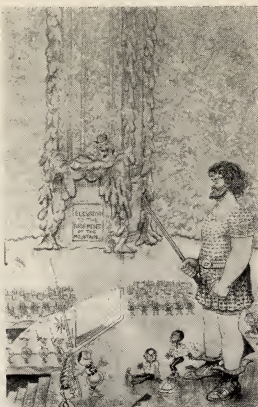 ELEVATOR
TO THE
BASEMENT
OF THE
MOUNTAIN